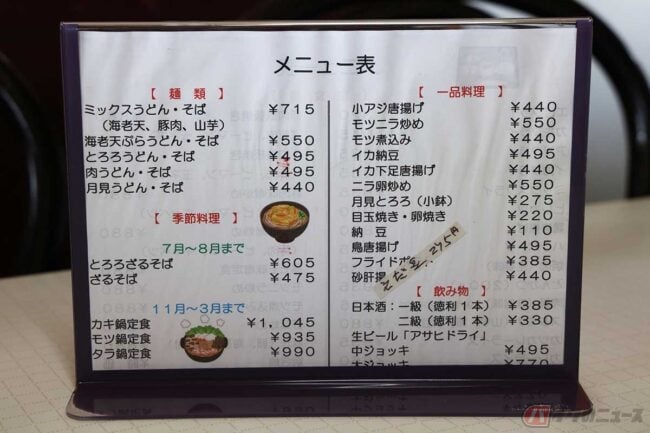 メニュー表
【 麺 類 】
ミックスうどん・そば ¥715
（海老天、豚肉、山芋）
海老天ぷらうどん・そば ¥550
とろろうどん・そば ¥495
肉うどん・そば ¥495
月見うどん・そば ¥440
【 季節料理 】
7月～8月まで
とろろざるそば ¥605
ざるそば ¥475
11月～3月まで
カキ鍋定食 ¥1,045
モツ鍋定食 ¥935
タラ鍋定食 ¥990
【 一品料理 】
小アジ唐揚げ ¥440
モツニラ炒め ¥550
モツ煮込み ¥440
イカ納豆 ¥495
イカ下足唐揚げ ¥440
ニラ卵炒め ¥550
月見とろろ（小鉢） ¥275
目玉焼き・卵焼き ¥220
納 豆 ¥110
鳥唐揚げ ¥495
フライドポ ¥385
砂肝揚 ¥440
275円
【 飲み物 】
日本酒：一級（徳利1本） ¥385
二級（徳利1本） ¥330
生ビール「アサヒドライ」
中ジョッキ ¥495
大ジョッキ ¥770